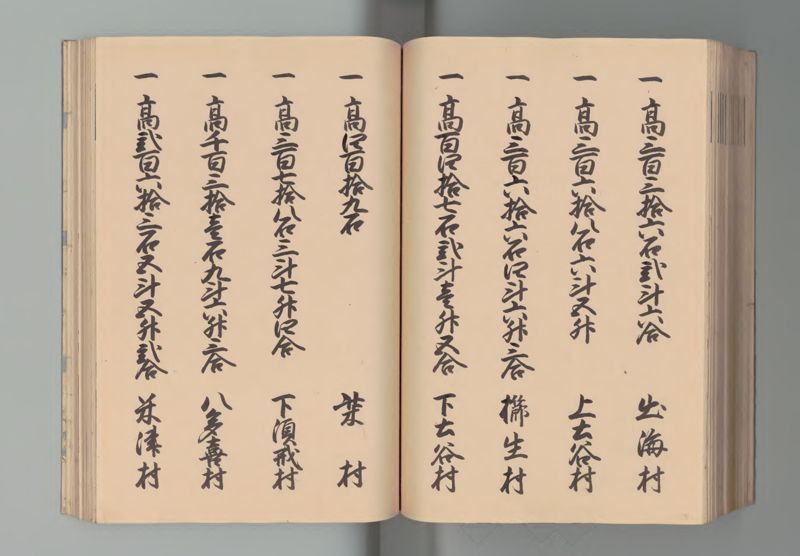 一 高三百三拾六石弐斗六合 出海村
一 高三百六拾八石六斗五升 上大谷村
一 高三百六拾六石四斗六升三合 櫛生村
一 高百四拾七石弐斗壱升五合 下大谷村
一 高四百拾九石 柴村
一 高三百七拾八石三斗七升四合 下須戒村
一 高千百三拾壱石九斗六升三合 八多喜村
一 高弐百六拾三石五斗五升弐合 米津村